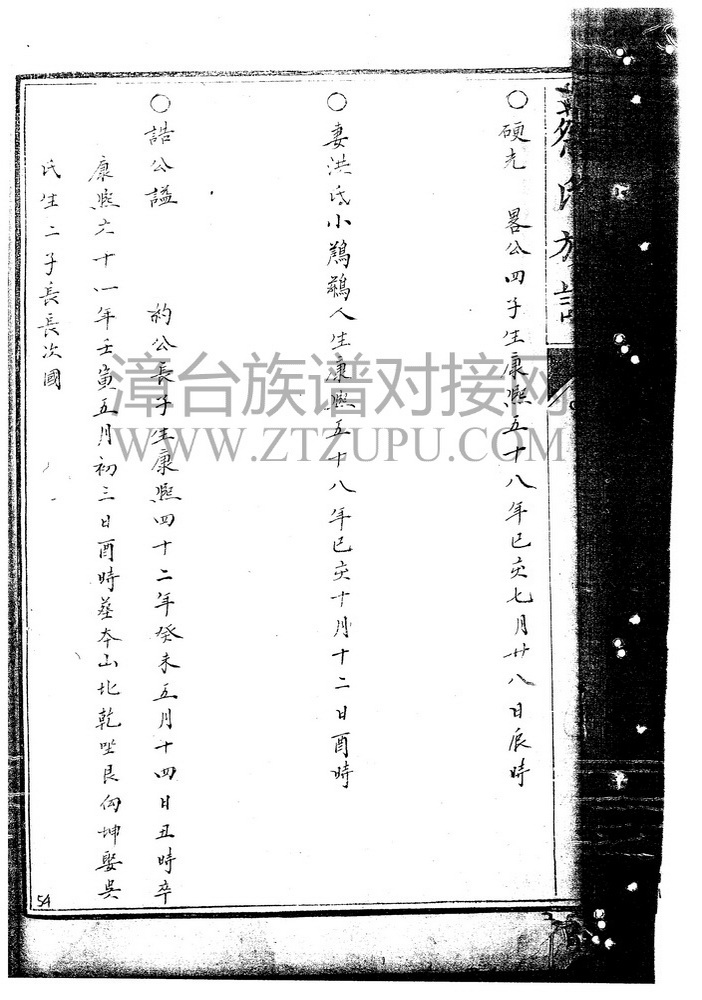 蔡氏族譜
○硬先 畧公四子生康熙五十八年己亥七月廿八日辰時
○妻洪氏小鷓鵜人生康熙五十八年己亥十月十二日酉時
○誥公諡 約公長子生康熙四十二年癸未五月十四日丑時卒
康熙六十一年壬寅五月初三日酉時葬本山北乾坐艮向坤娶吳
氏生二子長長次國
漳台族谱对接网
WWW.ZTZUPU.COM
54